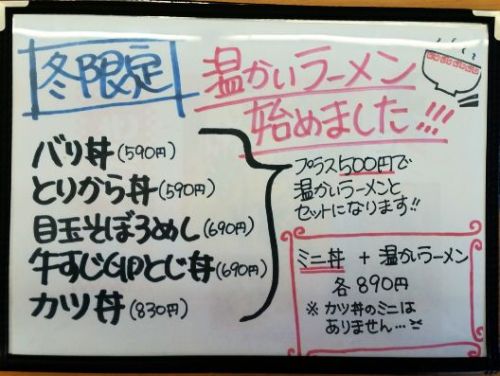 冬限定
温かいラーメン
始めました!!!
バリ丼(590円)
とりから丼(590円)
目玉そぼろめし(690円)
牛すじGPとじ丼(690円)
カツ丼(830円)
プラス500円で
温かいラーメンと
セットになります!!
ミニ丼 + 温かいラーメン
各890円
※カツ丼のミニは
ありません…